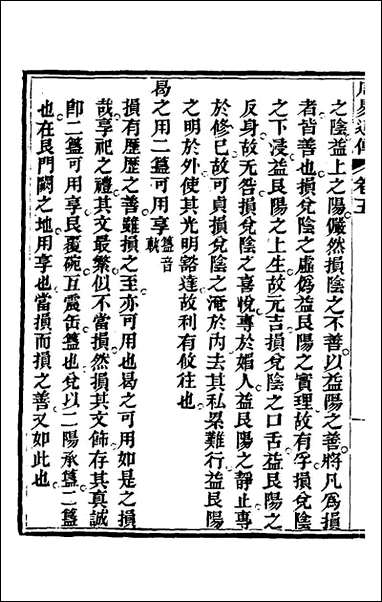 周易通傳 卷五
之陰益上之陽儼然損陰之不善以益陽之善將凡爲損
者皆善也損兌陰之虛僞益艮陽之實理故有孚損兌陰
之下浸益艮陽之上生故元吉損兌陰之口舌益艮陽之
反身故无咎損兌陰之喜悅專於媚人益艮陽之靜止專
於修己故可貞損兌陰之淹於內去其私累難行益艮陽
之明於外使其光明豁達故利有攸往也
曷之用二簋可用享簋音軌
損有歷歷之善雖損之至亦可用也曷之可用如是之損
哉享祀之禮其文最繁似不當損然損其文飾存其真誠
卽二簋可用享艮覆碗互震缶簋也兌以二陽承簋二簋
也在艮門闕之地用享也當損而損之善又如此也